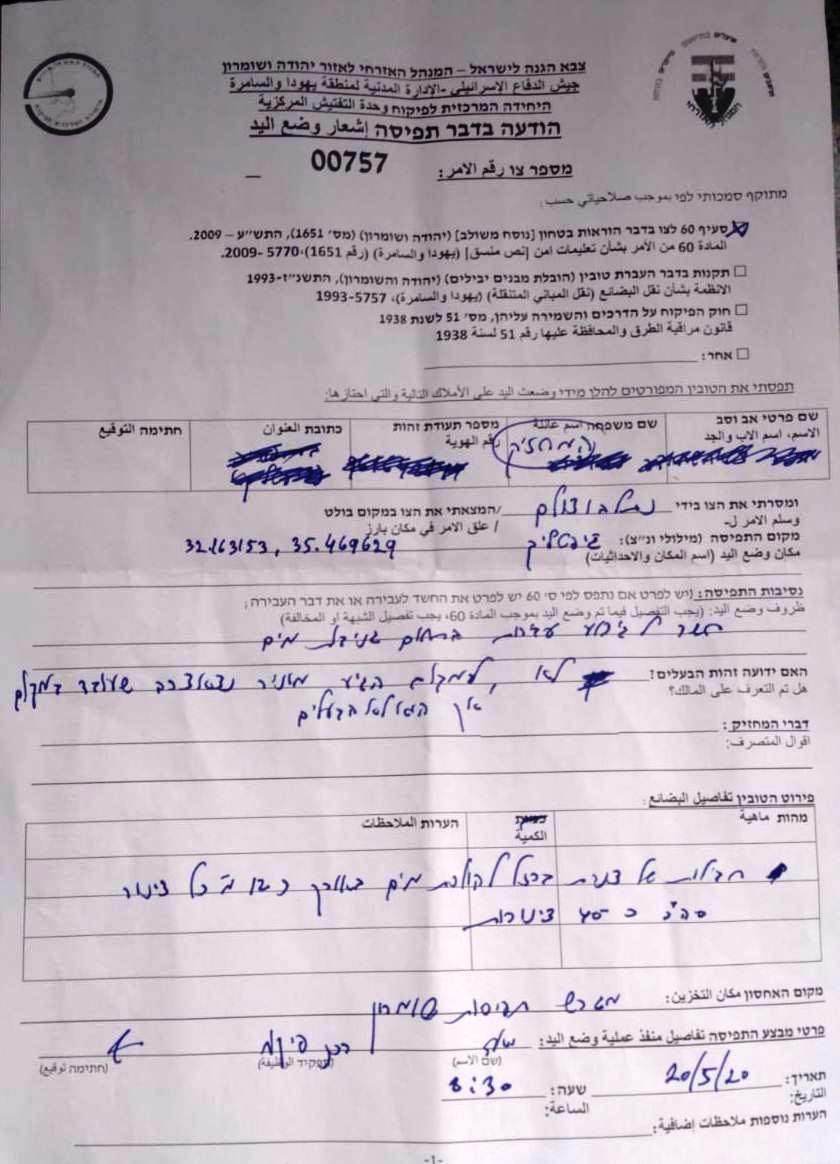 צבא הגנה לישראל – המנהל האזרחי לאזור יהודה ושומרון
جيش الدفاع الاسرائيلي -الإدارة المدنية لمنطقة يهودا والسامرة
היחידה המרכזית לפיקוח وحدة التفتيش المركزية
הודעה בדבר תפיסה إشعار وضع اليد
מספר צו رقم الامر: 00757
מתוקף סמכותי לפי بموجب صلاحياتي حسب:
סעיף 60 לצו בדבר הוראות בטחון [נוסח משולב] (יהודה ושומרון) (מס' 1651), התש"ע – 2009.
المادة 60 من الأمر بشأن تعليمات امن [نص منسق] (يهودا والسامرة) (رقم 1651)، 5770 -2009.
תקנות בדבר העברת טובין (הובלת מבנים יבילים) (יהודה והשומרון), התשנ"ז-1993
الانظمة بشأن نقل البضائع (نقل المباني المتنقلة) (يهودا والسامرة)، 5757-1993
חוק הפיקוח על הדרכים והשמירה עליהן, מס' 51 לשנת 1938
قانون مراقبة الطرق والمحافظة عليها رقم 51 لسنة 1938
אחר:
תפסתי את הטובין המפורטים להלן מידי وضعت اليد على الأملاك التالية والتي احتازها:
שם פרטי אב וסב שם משפחה اسم عائلة מספר תעודת זהות כתובת العنوان חתימה التوقيع
الاسم، اسم الاب والجد رقم الهوية
המחזיק
ומסרתי את הצו בידי /המצאתי את הצו במקום בולט
وسلم الامر ل- / علق الامر في مكان بارز
מקום התפיסה (מילולי ונ"צ): ג'יפטליק 32.163153, 35.469629
مكان وضع اليد (اسم المكان والاحداثيات):
נסיבות התפיסה: (יש לפרט אם נתפס לפי ס' 60 יש לפרט את החשד לעבירה או את דבר העבירה;
ظروف وضع اليد: (يجب التفصيل فيما تم وضع اليد بموجب المادة 60، يجب تفصيل الشبهة او المخالفة)
חשד לביצוע עבירות בתחום גניבת מים
האם ידועה זהות הבעלים? לא, למקום הגיע מוניר נסאסרה שעובד במקום
هل تم التعرف على المالك؟ אך הוא לא הבעלים
דברי המחזיק:
اقوال المتصرف:
פירוט הטובין تفاصيل البضائع:
מהות ماهية الكمية הערות الملاحظات
חבילות של צנרת ברזל להולכת מים באורך כ 12 מ' כל צינור
סה"כ כ 45 צינורות
מקום האחסון مكان التخزين: מגרש תפיסות שומרון
פרטי מבצע התפיסה تفاصيل منفذ عملية وضع اليد:
(שם الاسم) (תפקיד الوظيفة) (חתימה توقيع)
תאריך: 20/5/20 שעה: 8:30
التاريخ: الساعة:
הערות נוספות ملاحظات إضافية:
-1-